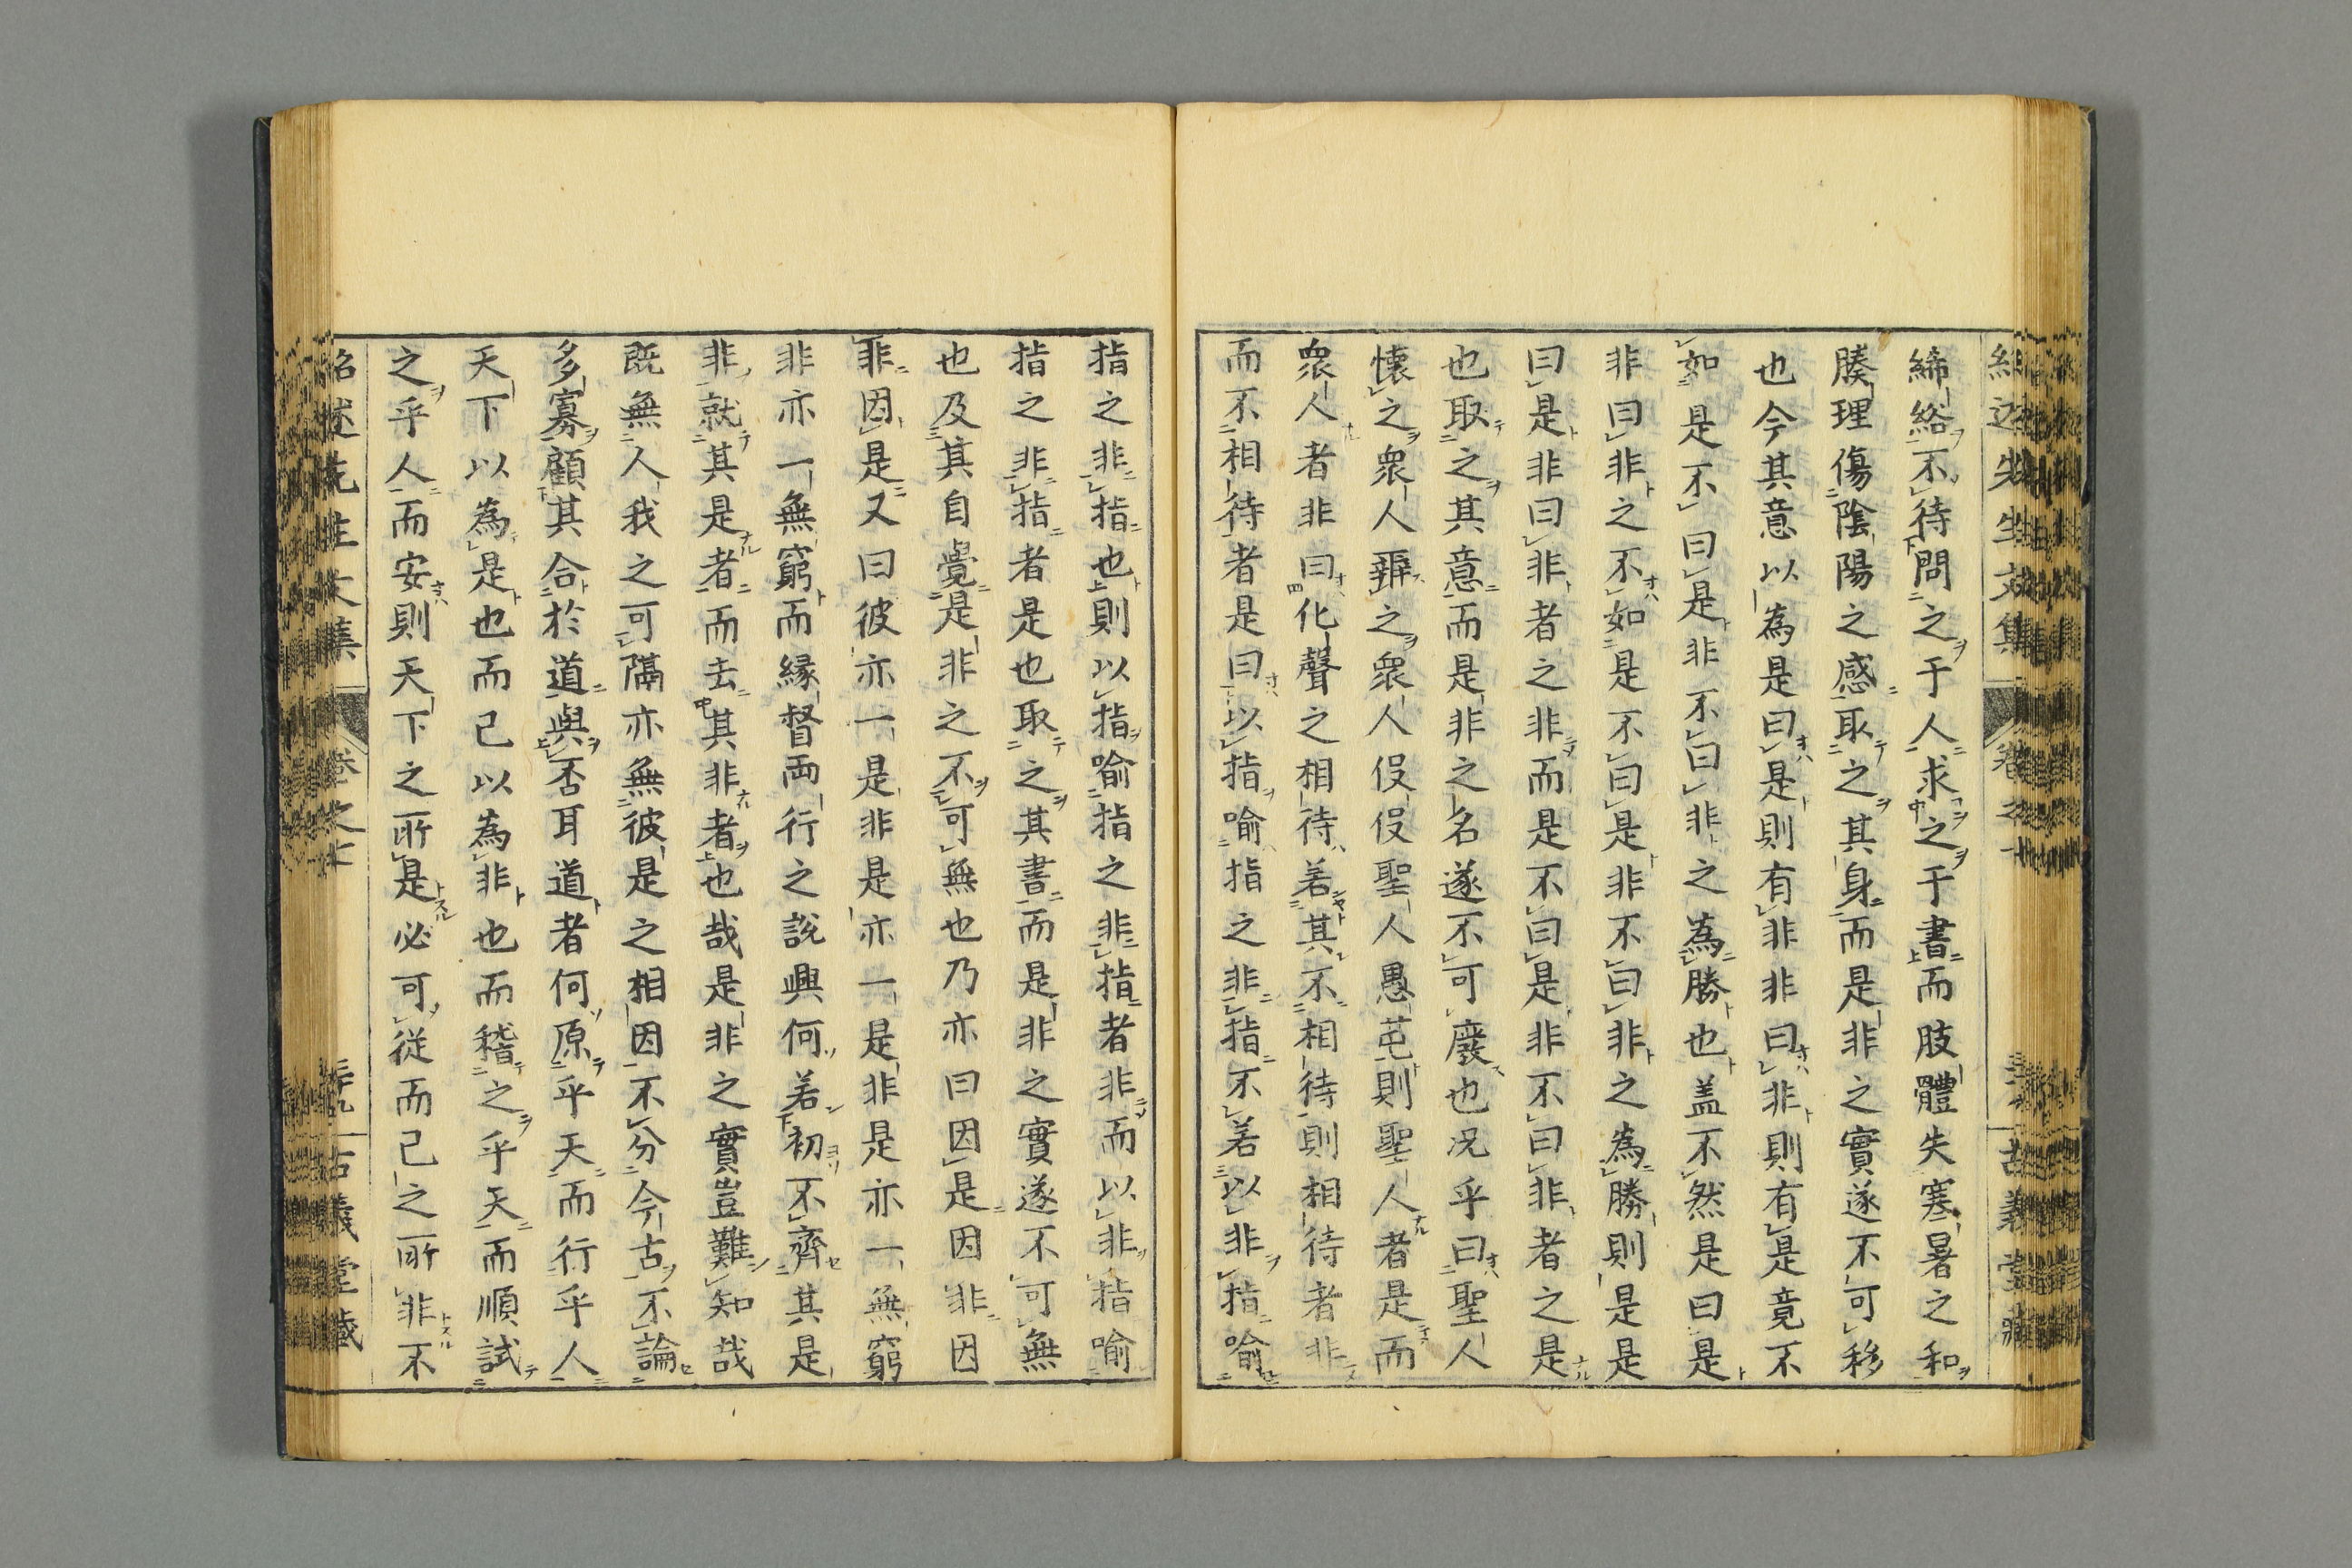 絺綌不待問之于人求之于書而肢體失寒暑之和
腠理傷陰陽之感取之其身而是非之實遂不可移
也今其意以為是曰是則有非非曰非則有是竟不
如是不曰是非不曰非之為勝也盖不然是曰是
非曰非之不如是不曰是非不曰非之為勝則是是
曰是非曰非者之非而是不曰是非不曰非者之是
也取之其意而是非之名遂不可廢也况乎曰聖人
懷之衆人辨之衆人伇伇聖人愚芚則聖人者是而
衆人者非曰化聲之相待若其不相待則相待者非
而不相待者是曰以指喻指之非指不若以非指喻
指之非指也則以指喻指之非指者非而以非指喻
指之非指者是也取之其書而是非之實遂不可無
也及其自覺是非之不可無也乃亦曰因是因非因
非因是又曰彼亦一是非是亦一是非是亦一無窮
非亦一無窮而緣督両行之說興何若初不齊其是
非就其是者而去其非者也哉是非之實豈難知哉
既無人我之可隔亦無彼是之相因不分今古不論
多寡顧其合於道與否耳道者何原乎天而行乎人
天下以為是也而已以為非也而稽之乎天而順試
之乎人而安則天下之所是必可從而已之所非不
紹述先生文集 卷之十 古義堂藏